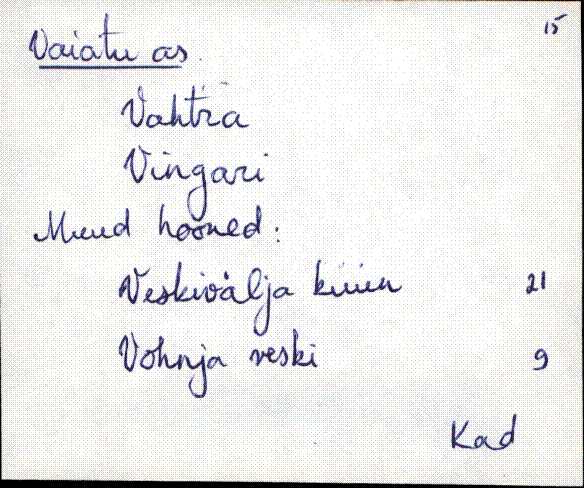 15
Vaiatu as.
Vahtra
Vingari
Muud hooned:
Veskivälja küün 21
Vohnja veski 9
Kad